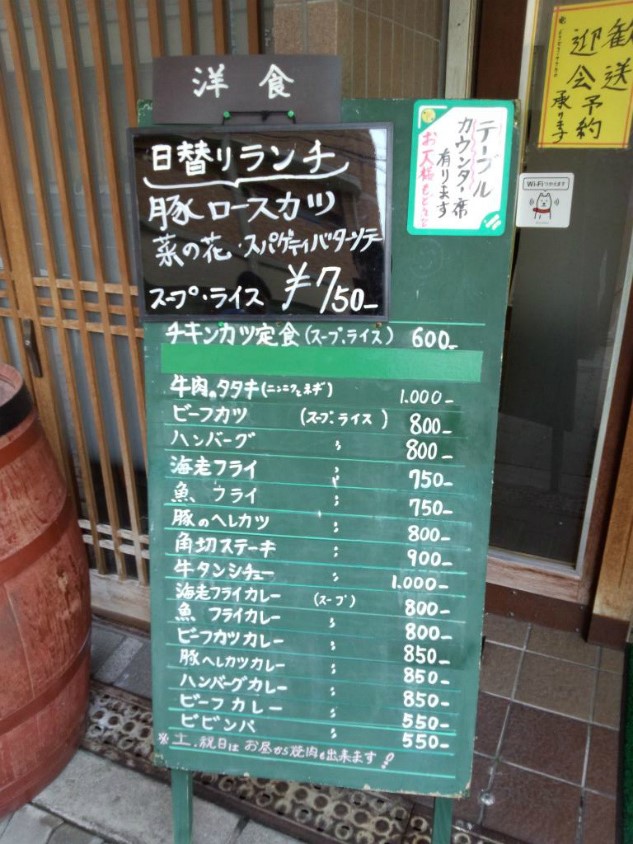 洋食
日替りランチ
豚ロースカツ
菜の花・スパゲティバターソテ
スープ・ライス ¥750-
チキンカツ定食(スープ.ライス) 600-
牛肉のタタキ(ニンニクとネギ) 1.000-
ビーフカツ (スープ.ライス) 800-
ハンバーグ 〃 800-
海老フライ 〃 750-
魚 フライ 〃 750-
豚のヘレカツ 〃 800-
角切ステーキ 〃 900-
牛タンシチュー 〃 1.000-
海老フライカレー (スープ) 800-
魚 フライカレー 〃 800-
ビーフカツカレー 〃 850-
豚ヘレカツカレー 〃 850-
ハンバーグカレー 〃 850-
ビーフカレー 〃 550-
ビビンバ 〃 550-
※土.祝日はお昼から焼肉も出来ます!
テーブル
カウンター席
有ります
歓送
迎会予約
承ります
Wi-Fiつかえます